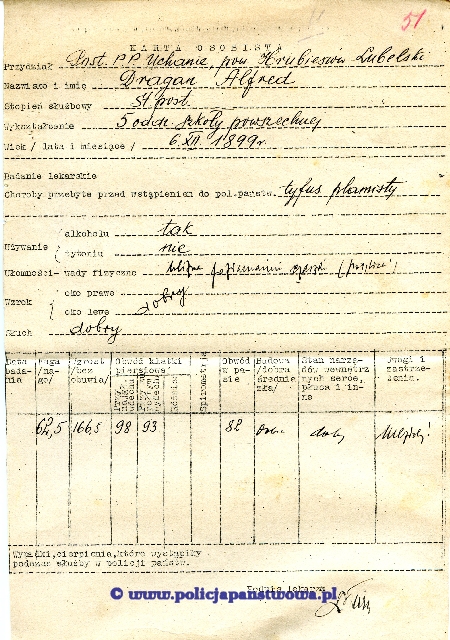 51
KARTA OSOBISTA
Przydział Post. P.P. Uchanie, pow. Hrubieszów Lubelski
Nazwisko i imię Dragan Alfred
Stopień służbowy st. post.
Wykształcenie 5 oddz. szkoły powszechnej
Wiek / lata i miesiące / 6.XII.1899r.
Badanie lekarskie
Choroby przebyte przed wstąpieniem do pol.państw. tyfus plamisty
Używanie
alkoholu tak
tytoniu nie
Ułomności- wady fizyczne blizna
Wzrok
oko prawe
oko lewe dobry
Słuch dobry
Data bada- nia
Waga /na- go/
Wzrost /bez obuwia/
Obwód klatki piersiowej
przy wydechu
Spirometria
Obwód w pa- sie
Budowa /dobra średnia zła/
Stan narzą- dów wewnętrz nych serce, płuca i in- ne
Uwagi i zastrze- żenia.
62,5 166,5 98 93 82 dobra dobry
Wypadki,cierpienia,które wystąpiły
podczas służby w policji państw.
Podpis lekarza
© www.policjapanstwowa.pl